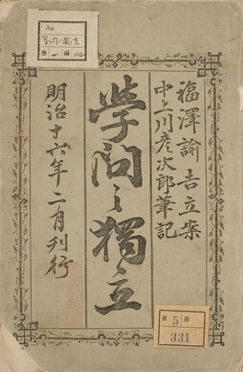 福澤諭吉立案
中上川彦次郎筆記
学問之獨立
明治十六年二月刊行
5
331